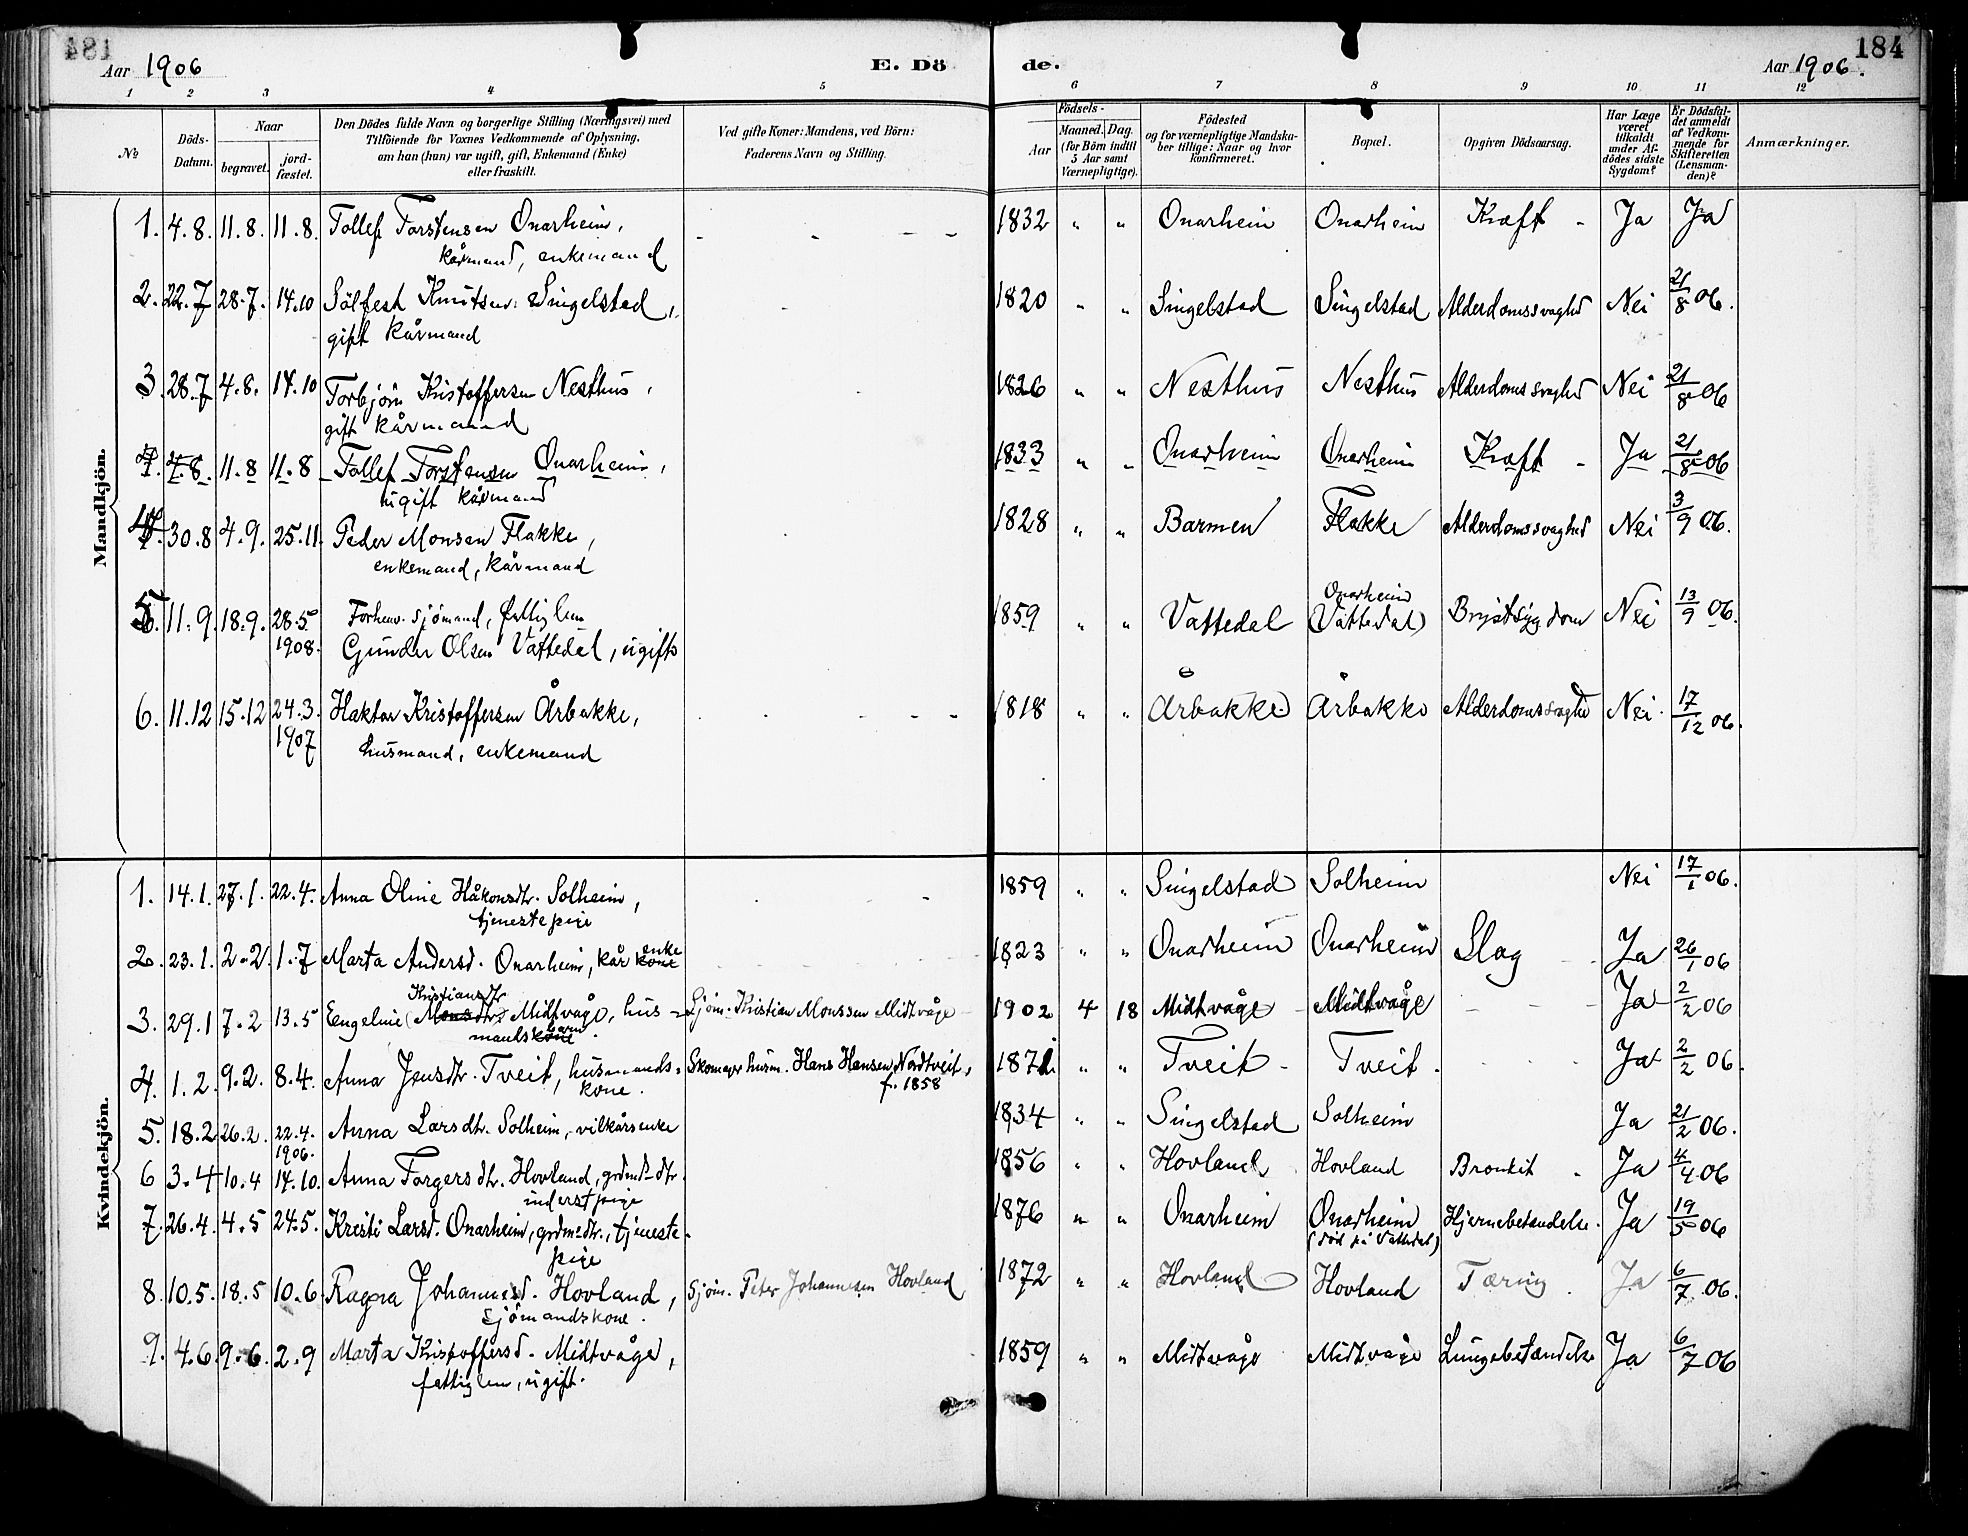 184
Aar 1906
E. Dö
de.
Aar 1906.
184
1 2 3 4 5 6 7 8 9 10 11 12
No
Döds-Datum.
Naar
begravet.
jord-fæstet.
Den Dödes fulde Navn og borgerlige Stilling (Næringsvei) med
Tilföiende for Voxnes Vedkommende af Oplysning,
om han (hun) var ugift, gift, Enkemand (Enke)
eller fraskilt.
Ved gifte Koner: Mandens, ved Börn:
Faderens Navn og Stilling.
Födsels-
Aar
Maaned. Dag.
(for Börn indtil
5 Aar samt
Værnepligtige).
Födested
og for værnepligtige Mandska-
ber tillige: Naar og hvor
konfirmeret.
Bopæl.
Opgiven Dödsaarsag.
Har Læge
været
tilkaldt
under Af-
dödes sidste
Sygdom?
Er Dödsfal-
det anmeldt
af Vedkom-
mende for
Skifteretten
(Lensman-
den)?
Anmærkninger.
Mandkjön.
1. 4.8. 11.8. 11.8. Tollef Torstensen Onarheim, - - - - 1832 " " Onarheim Onarheim Kræft - Ja Ja
kårmand, enkemand
2. 22.7 28.7. 14.10 Sölfest Knutsen Singelstad, 1820 " " Singelstad Singelstad Alderdomssvaghed Nei 21/8 06.
gift kårmand
3. 28.7 4.8. 14.10 Torbjörn Kristoffersen Nesthus, 1826 " " Nesthus Nesthus Alderdomssvaghed Nei 21/8 06
gift kårmand
4. 4.8. 11.8 11.8 Tollef Torstensen Onarheim, 1833 " " Onarheim Onarheim Kræft - Ja 21/8 06
ugift kårmand
4. 30.8 4.9. 25.11. Peder Monsen Flakke, 1828 " " Barmen Flakke Alderdomssvaghed Nei 3/9 06.
enkemand, kårmand
5. 11.9. 18.9. 28.5 1908. Forhenv. sjömand, fattiglem
Gunder Olsen Vattedal, ugift 1859 " " Vattedal Onarheim (Vattedal) Brystsygdom Nei 13/9 06.
6. 11.12 15.12 24.3. 1907 Haktor Kristoffersen Årbakke, 1818 " " Årbakke Årbakke Alderdomssvaghed Nei. 17/12 06.
husmand, enkemand
Kvindekjön.
1. 14.1. 27.1. 22.4. Anna Oline Håkonsdtr. Solheim, 1859 " " Singelstad Solheim Nei 17/1 06.
tjenestepige
2. 23.1. 2.2. 1.7 Marta Andersd. Onarheim, kår kone enke 1823 " " Onarheim Onarheim Slag Ja 26/1 06
3. 29.1 7.2 13.5 Engeline (Monsdtr. Kristiansdtr Midtvåge, hus- Sjöm. Kristian Monssen Midtvåge 1902 4 18 Midtvåge Midtvåge Ja 2/2 06
mandskone barn.
4. 1.2. 9.2. 8.4. Anna Jensdtr. Tveit, husmands- Skomager husm. Hans Hansen Nordtveit, 1871. " " Tveit Tveit Ja 2/2 06.
kone. f. 1858
5. 18.2 26.2. 22.4. 1906. Anna Larsdtr. Solheim, vilkårsenke 1834 " " Singelstad Solheim Ja 21/2 06.
6 3.4 10.4 14.10. Anna Torgersdtr. Hovland, grdmd-dtr 1856 " " Hovland Hovland Bronkit Ja 4/4 06
inderstpige
7. 26.4. 4.5 24.5. Kristi Larsd. Onarheim, grdmdtr., tjeneste- 1876 " " Onarheim Onarheim Hjernebetændelse. Ja 19/5 06
pige (död på Vattedal)
8. 10.5. 18.5 10.6 Ragna Johannesd. Hovland, Sjöm. Peter Johannesen Hovland 1872 " " Hovland Hovland Tæring Ja 6/7 06.
Sjömandskone.
9. 4.6. 9.6. 2.9 Marta Kristoffersd. Midtvåge, 1859 " " Midtvåge Midtvåge Lungebetændelse Ja 6/7 06
fattiglem, ugift.